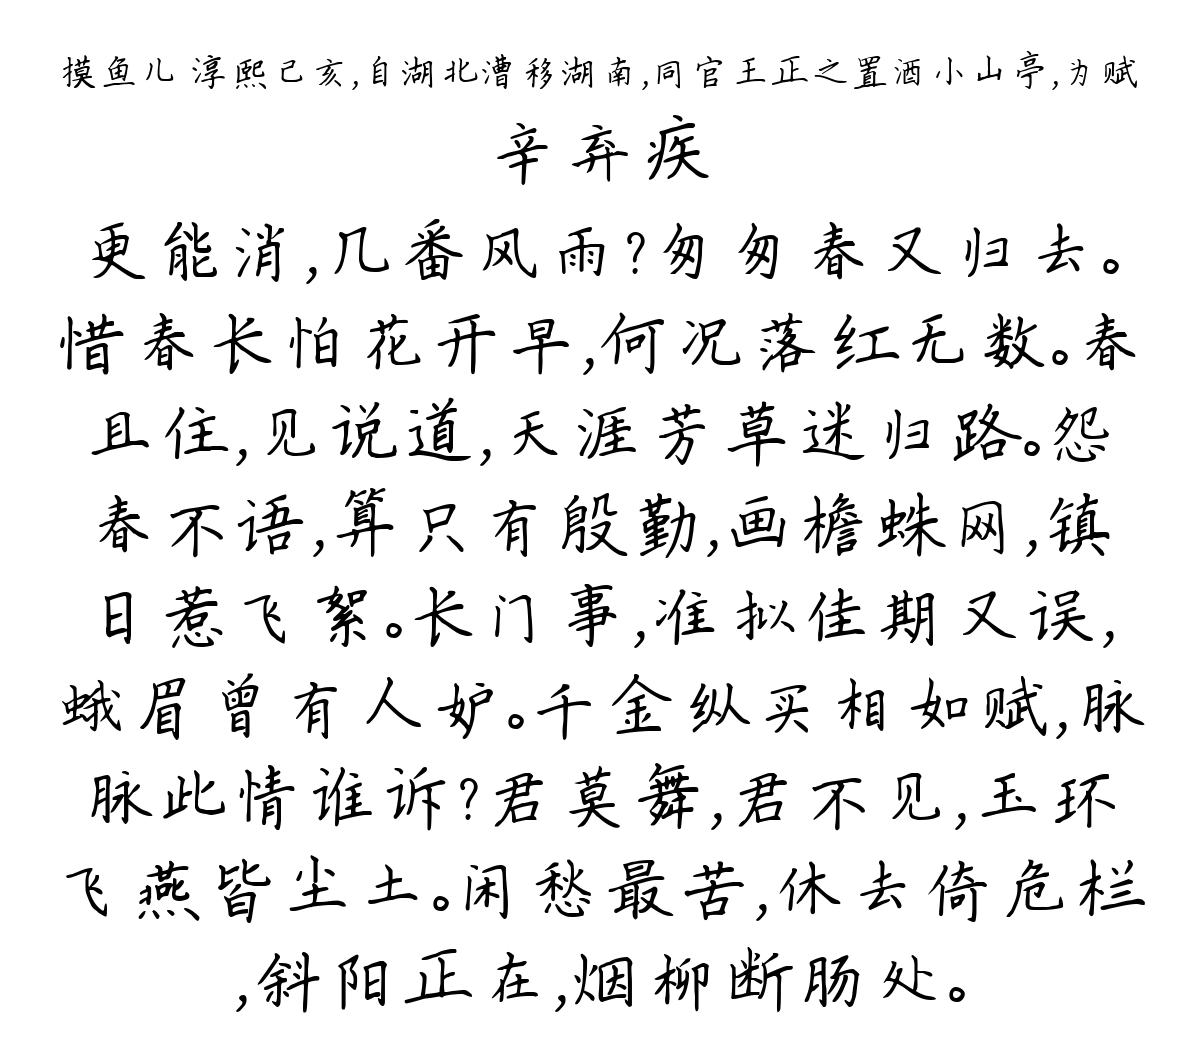 摸鱼儿 淳熙己亥,自湖北漕移湖南,同官王正之置酒小山亭,为赋
辛弃疾
更能消,几番风雨?匆匆春又归去。
惜春长怕花开早,何况落红无数。春
且住,见说道,天涯芳草迷归路。怨
春不语,算只有殷勤,画檐蛛网,镇
日惹飞絮。长门事,准拟佳期又误,
蛾眉曾有人妒。千金纵买相如赋,脉
脉此情谁诉?君莫舞,君不见,玉环
飞燕皆尘土。闲愁最苦,休去倚危栏
,斜阳正在,烟柳断肠处。